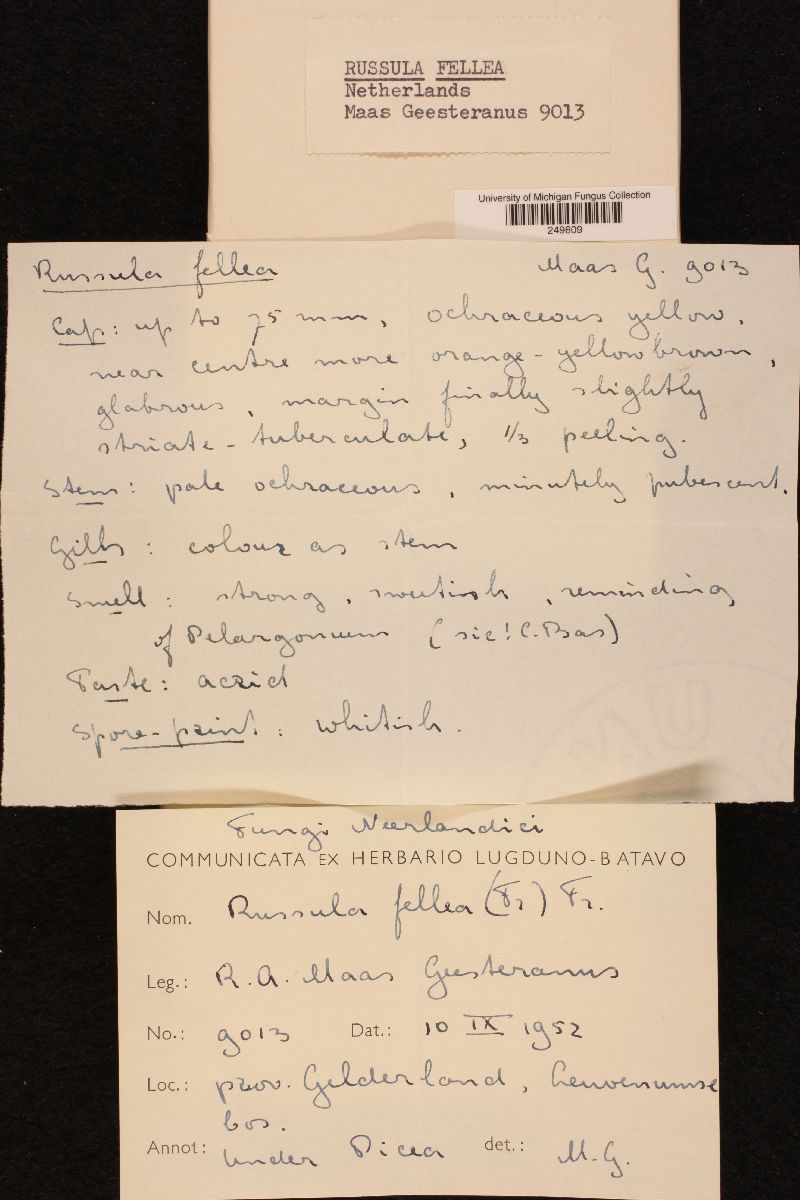 RUSSULA FELLEA
Netherlands
Maas Geesteranus 9013
University of Michigan Fungus Collection
249609
Russula fellea Maas G. 9013
Cap: up to 75 mm, ochraceous yellow,
near centre more orange-yellowbrown,
glabrous, margin finally slightly
striate-tuberculate, 1/3 peeling.
Stem: pale ochraceous, minutely pubescent.
Gills: colour as stem
Smell: strong, sweetish, reminding
of Pelargonium (sic! C. Bas)
Taste: acrid
Spore-print: whitish.
Fungi Neerlandici
COMMUNICATA EX HERBARIO LUGDUNO-BATAVO
Nom. Russula fellea (Fr) Fr.
Leg.: R.A. Maas Geesteranus
No.: 9013 Dat.: 10 IX 1952
Loc.: prov. Gelderland, Leuvenumse
bos.
Annot: Under Picea det.: M.G.